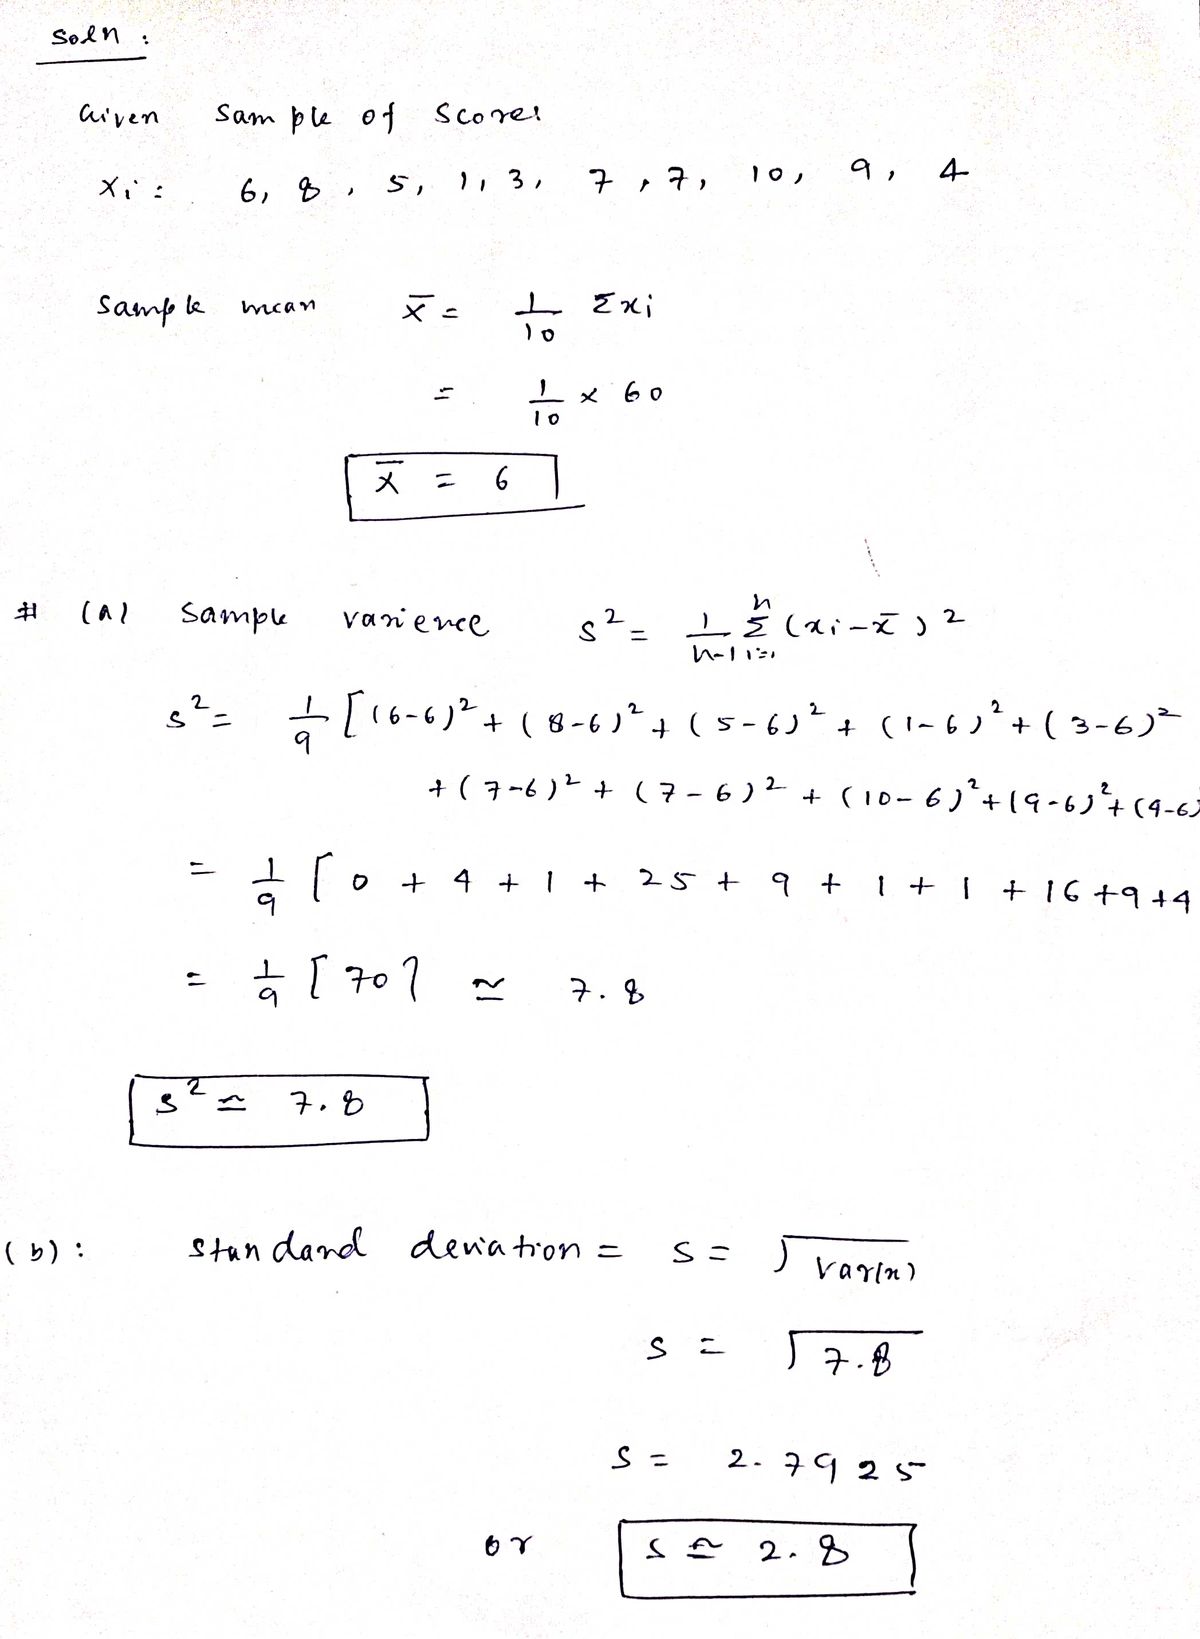 Soln :
Given Sample of Scores
Xi : 6, 8, 5, 1, 3, 7, 7, 10, 9, 4
Sample mean x̄ = 1/10 Σxi
= 1/10 × 60
x̄ = 6
# (A) Sample varience s² = 1/(n-1) Σ_{i=1}^{n} (xi - x̄)²
s² = 1/9 [(6-6)² + (8-6)² + (5-6)² + (1-6)² + (3-6)²
+ (7-6)² + (7-6)² + (10-6)² + (9-6)² + (4-6)
= 1/9 [0 + 4 + 1 + 25 + 9 + 1 + 1 + 16 + 9 + 4
= 1/9 [70] ≃ 7.8
s² ≃ 7.8
(b) : Standard deviation = s = √var(x)
s = √7.8
s = 2.7925
or s ≃ 2.8